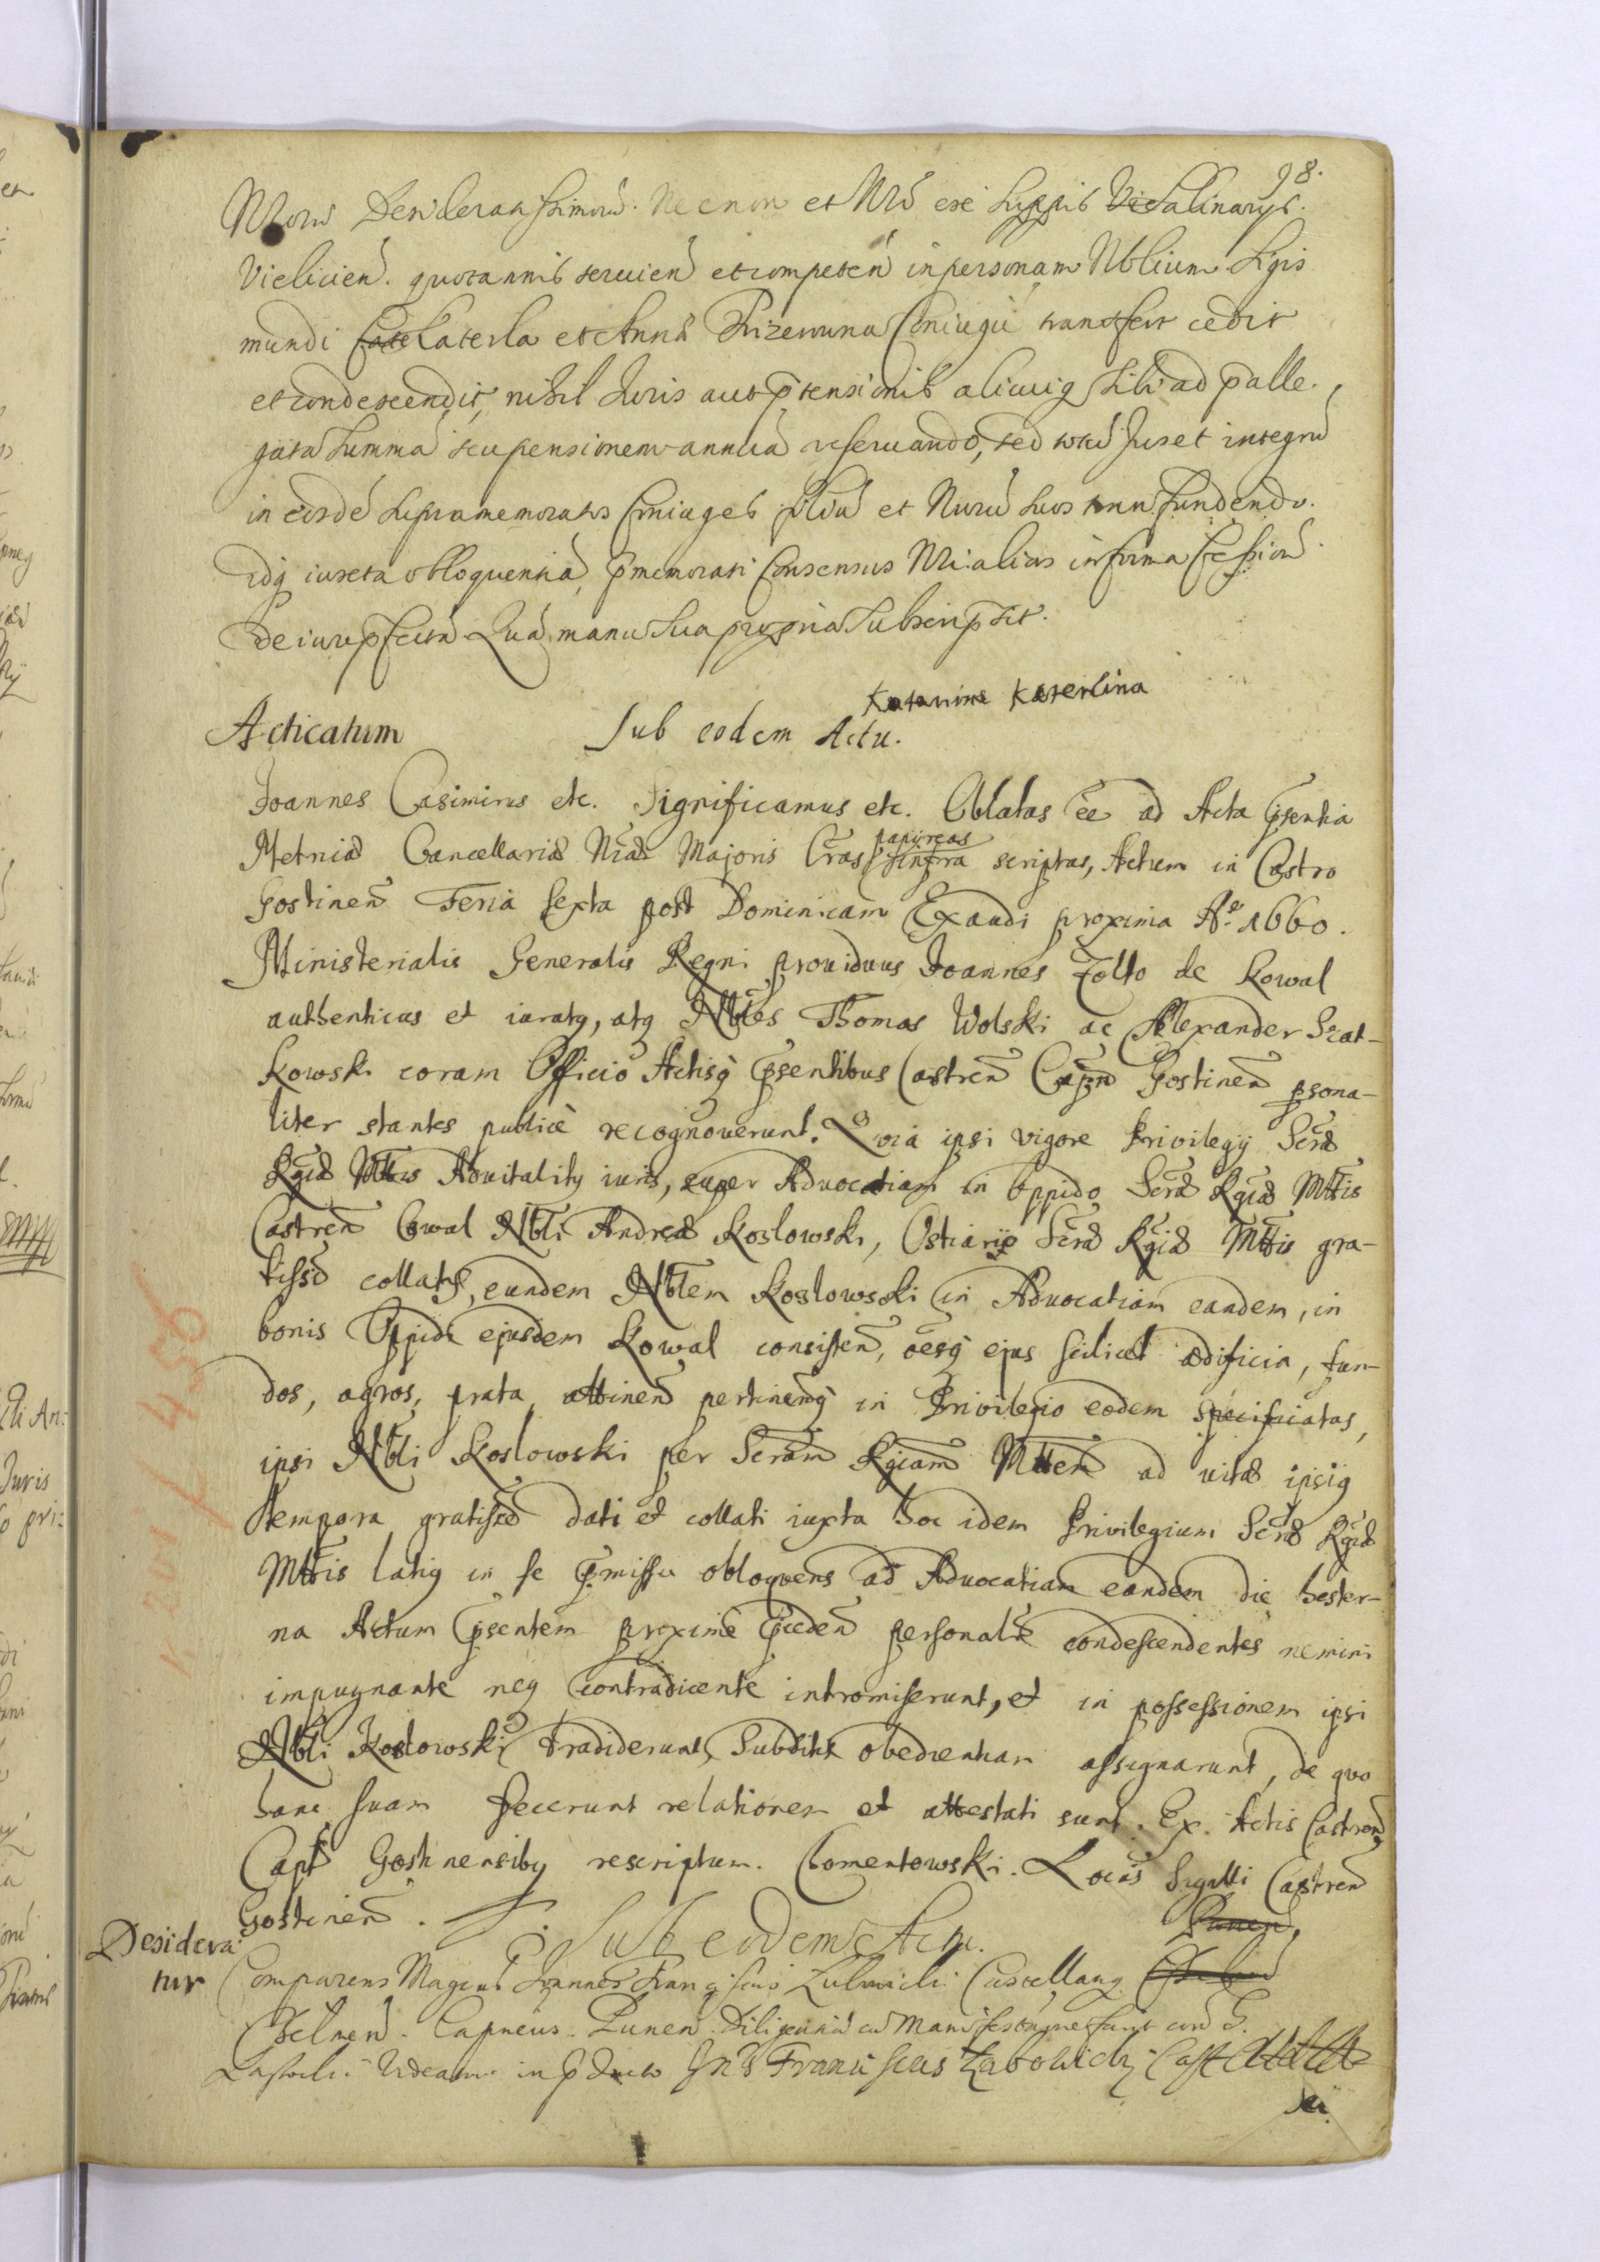 98.
Desideratissimorū. Necnon et Nrū exe Suppis Salinarÿs.
Vielicien̄. quotannis servien̄ et competen̄ in personam Nblium Sigis
mundi Katerla et Annæ Coniugū transfert cedit
et condescendit, nihil Iuris aut p̄tensionis alicuiq sibi ad p̄alle
gatā Summā seu pensionem annuā reservando, sed totū Jus et integrū
in eosdē supramemoratos Coniuges filiū et Nurū suos transfundendo.
idq iuxta obloquentiā p̄memorati Consensus Nri alias in forma Cession̄
de iure pfectā Quā manu sua propria Subscripsit.
Katarina Katerlina
Acticatum Sub eodem Actu.
Joannes Casimirus etc. Significamus etc. Oblatas ēē ad Acta p̄sentia
Metricæ Cancellariæ N̄ræ Majoris L̄ras papireas infra scriptas, Actum in Castro
Gostinen̄ Feria sexta post Dominicam Exaudi proxima Aº. 1660.
Ministerialis Generalis Regni providus Joannes Zolto de Kowal
authenticus et iuratq, atq Nbles Thomas Wolski ac Alexander Szat-
kowski coram Officio Actisq p̄sentibus Castren̄ Cap̄n Gostinen̄ psona-
liter stantes publicè recognoverunt. Quia ipsi vigore Privilegÿ Scræ
Rgiæ Mttis Advitalitq iuris, super Advocatiam in Oppido Scræ Rgiæ Mttis
Castren̄ Cowal Nbli Andreæ Koslowski, Ostiarÿ Scræ Rgiæ Mttis gra-
tisse collati, eundem Nblem Koslowski in Advocatiam eandem, in
bonis Oppidi ejusdem Kowal consisten̄, oēsq ejus scilicet ædificia, fun-
dos, agros, prata attinen̄ pertinen̄q in Privilegio eodem specificatas,
ipsi Nbli Koslowski per Scram Rgiam Mttem ad vitæ ipsiq
tempora gratisse dati et collati iuxta hoc idem Privilegium Scræ Rgiæ
Mttis latiq in se p̄missu obloquens ad Advocatiam eandem die hester-
na Actum p̄sentem proxime p̄ceden̄ personalr condescendentes nemini
impugnante neq contradicente intromiserunt, et in possessionem ipsi
Nbli Koslowski tradiderunt, Subditis obedientiam assignarunt, de quo
hanc suam fecerunt relationem et attestati sunt. Ex Actis Castren̄,
Capt Gostinensibq rescriptum. Chomentowski. Locus Sigilli Castren̄
Gostinen̄.
Desidera
tur
Sub eodem Actu.
Comparens Joannes Franciscus Lubowicki Castellanq
Chelmen̄. Capneus. Punen̄.
Franciscus Lubowicky Cast